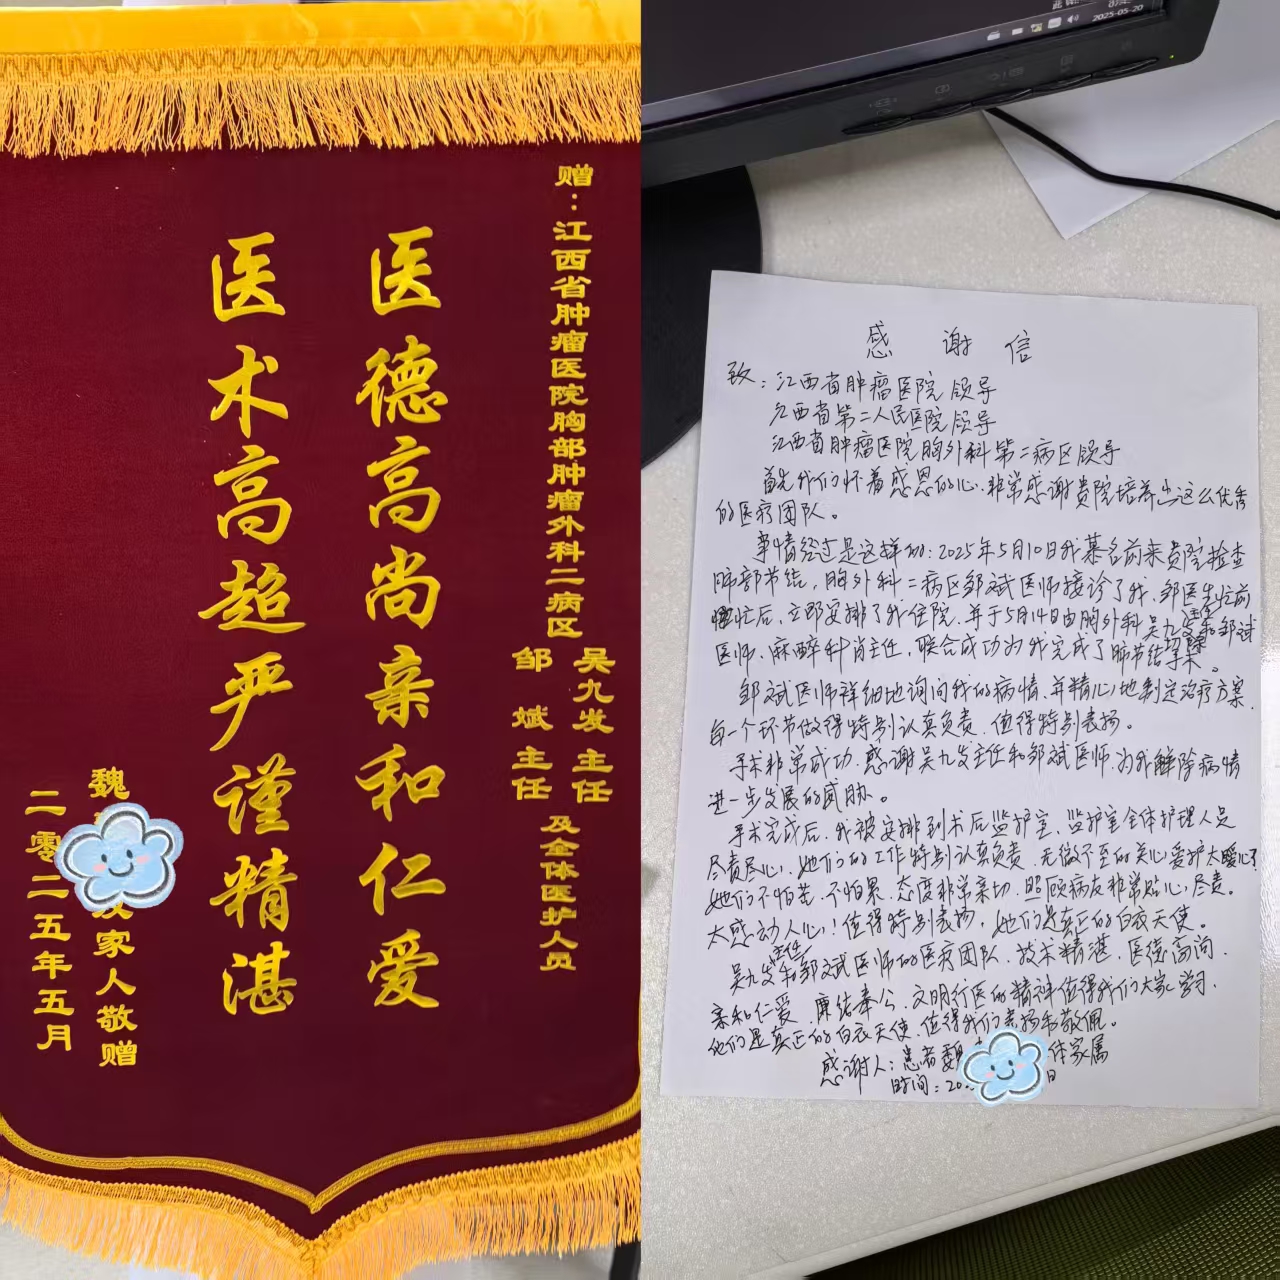 赠：江西省肿瘤医院胸部肿瘤外科二病区
吴九发主任
邹斌主任
及全体医护人员
医德高尚亲和仁爱
医术高超严谨精湛
魏
及家人敬赠
二零二五年五月
2025-05-20
感谢信
致：江西省肿瘤医院领导
江西省第二人民医院领导
江西省肿瘤医院胸外科第二病区领导
首先我们怀着感恩的心，非常感谢贵院培养出这么优秀
的医疗团队。
事情经过是这样的：2025年5月10日我慕名前来贵院检查
肺部节结，胸外科二病区邹斌医师接诊了我，邹医生忙前
忙后，立即安排了我住院，并于5月14日由胸外科吴九发主任和邹斌
医师，麻醉科肖主任，联合成功为我完成了肺节结切除手术。
邹斌医师详细地询问我的病情，并精心地制定治疗方案，
每一个环节做得特别认真负责，值得特别表扬。
手术非常成功，感谢吴九发主任和邹斌医师，为我解除病情
进一步发展的威胁。
手术完成后，我被安排到术后监护室，监护室全体护理人员
尽责尽心，她们的工作特别认真负责，无微不至的关心爱护太暖心了
她们不怕苦、不怕累，态度非常亲切，照顾病友非常贴心，尽责。
太感动人心！值得特别表扬，她们是真正的白衣天使。
吴九发主任和邹斌医师的医疗团队，技术精湛，医德高尚，
亲和仁爱，廉洁奉公，文明行医的精神值得我们大家学习，
他们是真正的白衣天使，值得我们表扬和敬佩。
感谢人：患者魏 家属
时间：20 日